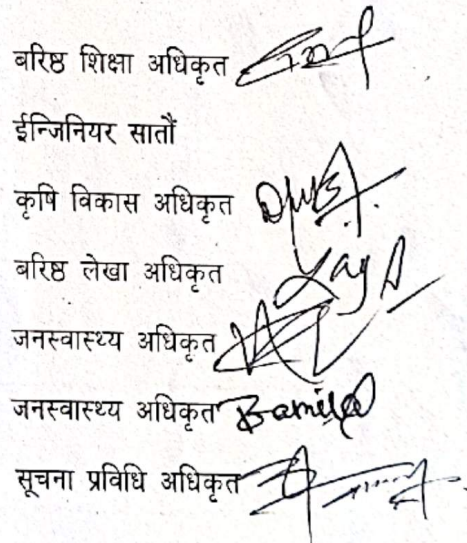 बरिष्ठ शिक्षा अधिकृत
ईन्जिनियर सातौं
कृषि विकास अधिकृत
बरिष्ठ लेखा अधिकृत
जनस्वास्थ्य अधिकृत
जनस्वास्थ्य अधिकृत
सूचना प्रविधि अधिकृत